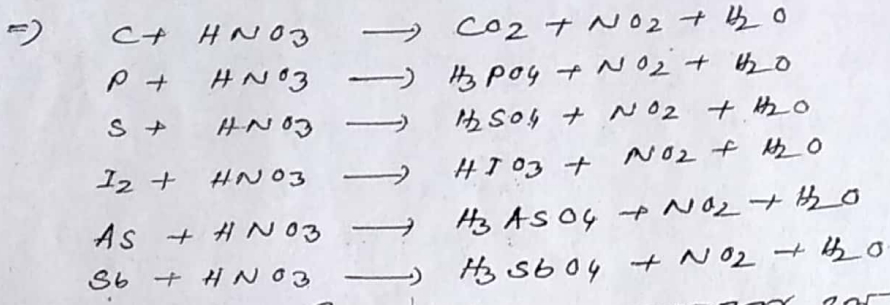 =) C + HNO3 → CO2 + NO2 + H2O
P + HNO3 → H3PO4 + NO2 + H2O
S + HNO3 → H2SO4 + NO2 + H2O
I2 + HNO3 → HIO3 + NO2 + H2O
AS + HNO3 → H3ASO4 + NO2 + H2O
Sb + HNO3 → H3SbO4 + NO2 + H2O